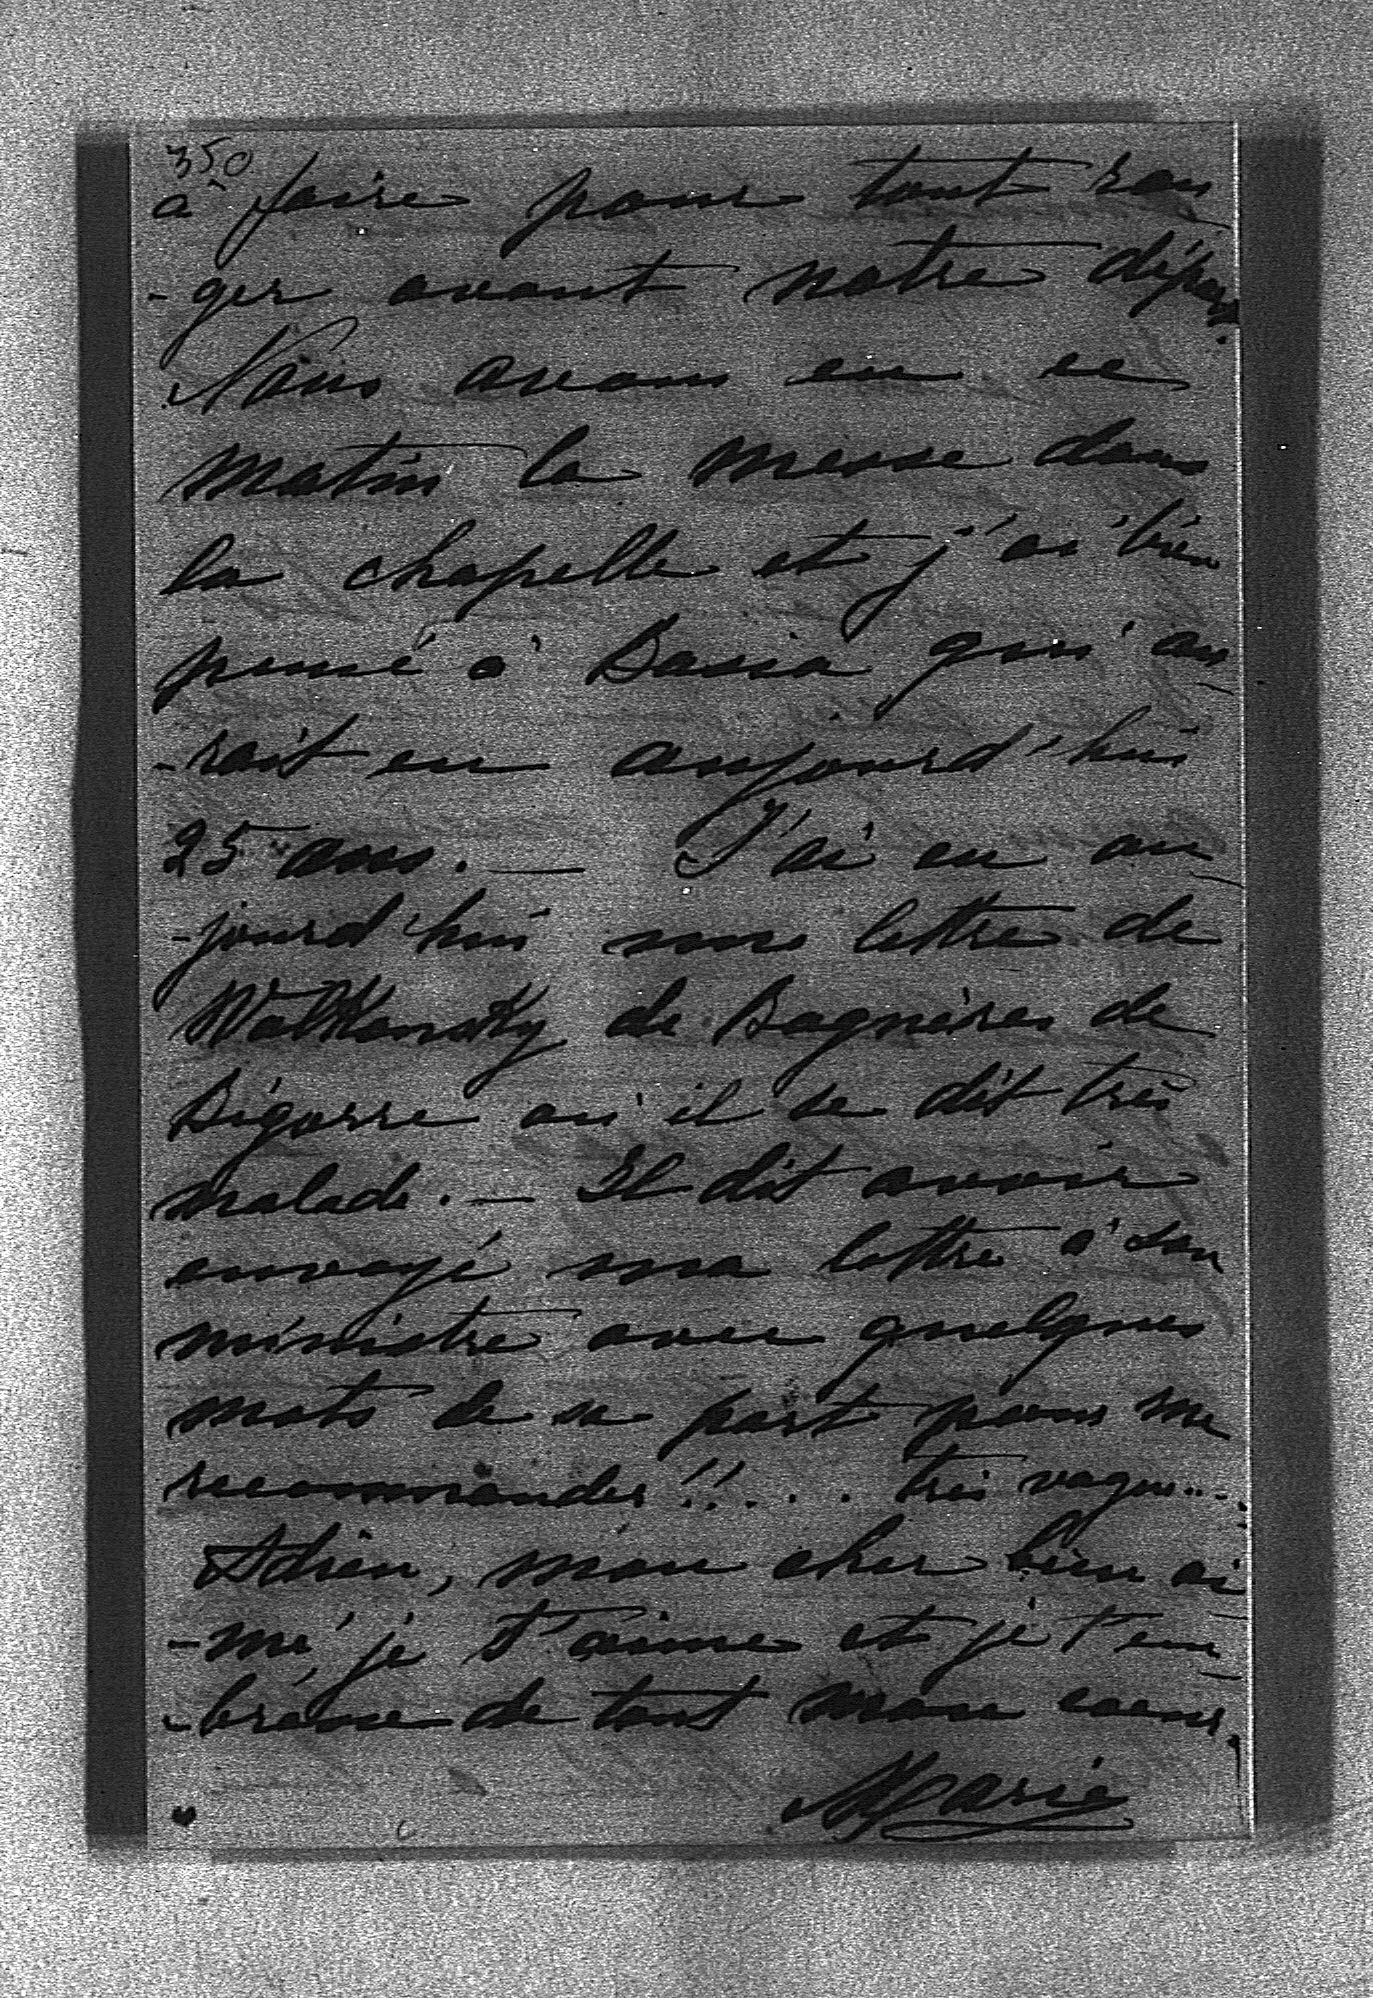 350
à faire pour tout ran
-ger avant notre départ.
Nous avons eu ce
matin la messe dans
la chapelle et j'ai bien
pensé à Basia qui au
-rait eu aujourd'hui
25 ans. — J'ai eu au
-jourd'hui une lettre de
Wolkonsky de Bagnères de
Bigorre où il se dit très
malade. — Il dit avoir
envoyé ma lettre à son
ministre avec quelques
mots de sa part pour me
recommander!!... très vague...
Adieu, mon cher bien ai
-mé, je t'aime et je t'em
-brasse de tout mon coeur.
Marie